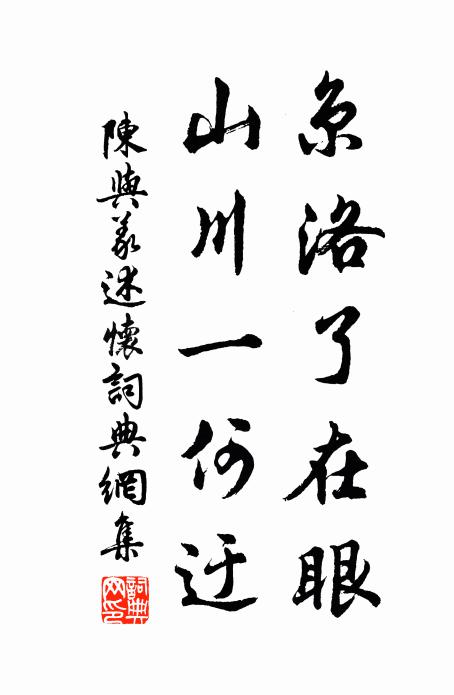 京洛了在眼
山川一何迂
陳與義述懷詞典網集
詞典網印